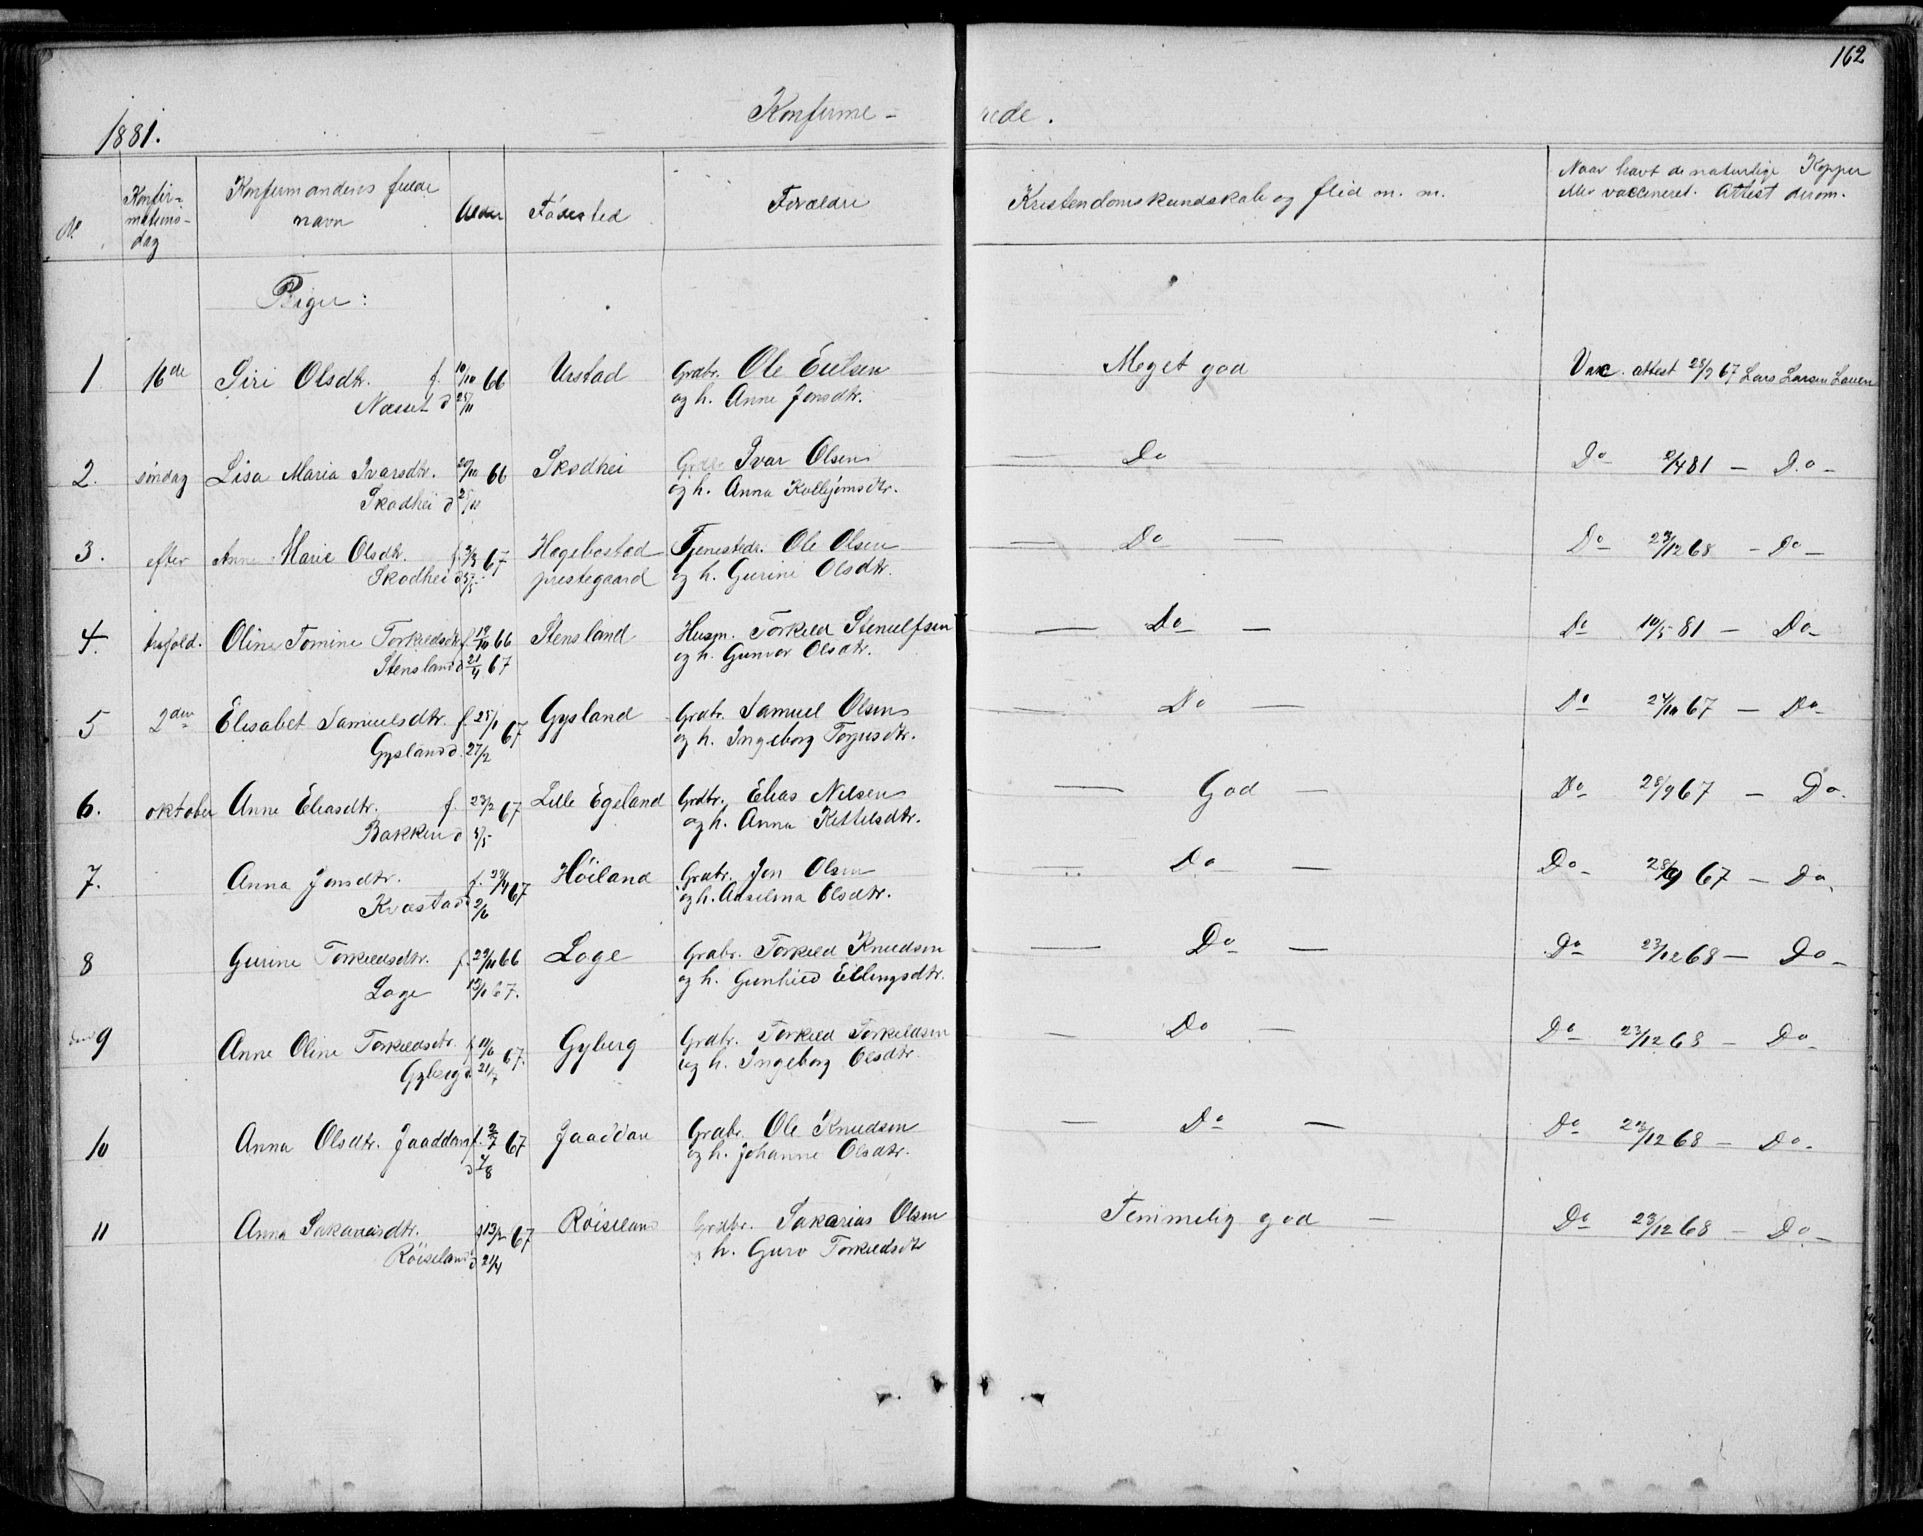 162
1881. Konfirme - rede.
No. Konfir=mations-dag Konfirmandens fulde navn Alder Fødested Forældre Kristendomskundskab og flid m. m. Naar havt de naturlige Kopper eller vaccineret. Attest derom.
Piger:
1 16de Siri Olsdtr. f. 10/10 66 Urstad Grdbr. Ole Eielsen Meget god Vac. attest 28/9 67 Lars Larsen Lauen
Næset d 25/11 og h. Anne Jonsdtr.
2. søndag Lisa Maria Ivarsdtr. 20/10 66 Skodhei Ivar Olsen — Do Do 2/4 81 — Do —
Skodhei d og h. Anna
3. efter Anne Marie Olsdtr. f. 3/3 67 Hægebostad Tjenestedr. Ole Olsen — Do — Do 23/12 68 — Do —
Skodhei d 5/5 prestegaard og h. Gurine Olsdtr.
4. trefold. Oline Tomine Torkeldsdtr f. 19/10 66 Stensland Husm. Torkeld Stenulfsen — Do — Do 10/5 81 — Do —
Stensland d 21/4 67 og h. Gunvor Olsdtr.
5 2den Elisabet Samuelsdtr. f. 25/1 67 Gysland Grdbr. Samuel Olsen — Do — Do 24/10 67 — Do —
Gysland d. 27/2 og h. Ingeborg Torjusdtr.
6. oktober Anne Eliasdtr. f. 23/2 67 Lille Egeland Grdbr. Elias Nilsen — God — Do 28/9 67 — Do.
Bakken d 5/5 og h. Anna Kittelsdtr.
7. Anna Jonsdtr. f. 22/4 67 Høiland Grdbr. Jon Olsen — Do — Do 28/9 67 — Do.
Kvæstad d 2/6 og h. Aaselena Olsdtr.
8 Gurine Torkeldsdtr. f. 29/11 66 Loge Grdbr. Torkeld Knudsen — Do — Do 23/12 68 — Do —
Loge 13/1 67. og h. Gunhild Ellingsdtr.
9 Anne Oline Torkeldsdtr. f 10/6 67. Gyberg Grdbr. Torkeld Torkeldsen — Do — Do 23/12 68 — Do —
Gyberg d 21/7 og h. Ingeborg Olsdtr.
10 Anna Olsdtr. Jaaddan f. 2/7 67 Jaaddan Grdbr. Ole Knudsen — Do — Do 23/12 68 — Do —
d 4/8 og h. Johanne Olsdtr.
11 Anna Sakariasdtr. f 13/2 67 Røiseland Grdbr. Sakarias Olsen Temmelig god — Do 23/12 68 — Do —
Røiseland d 21/4 h. Guro Torkeldsdtr